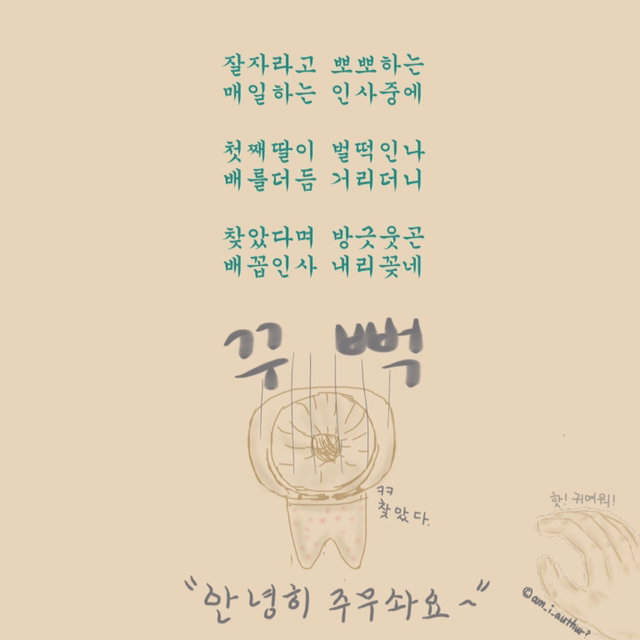 잘자라고 뽀뽀하는
매일하는 인사중에
첫째딸이 벌떡인나
배를더듬 거리더니
찾았다며 방긋웃곤
배꼽인사 내리꽂네
꾸 뻑
ㅋㅋ
찾았다.
핫! 귀여워!
"안녕히 주무솨요~"
©am_i_author?